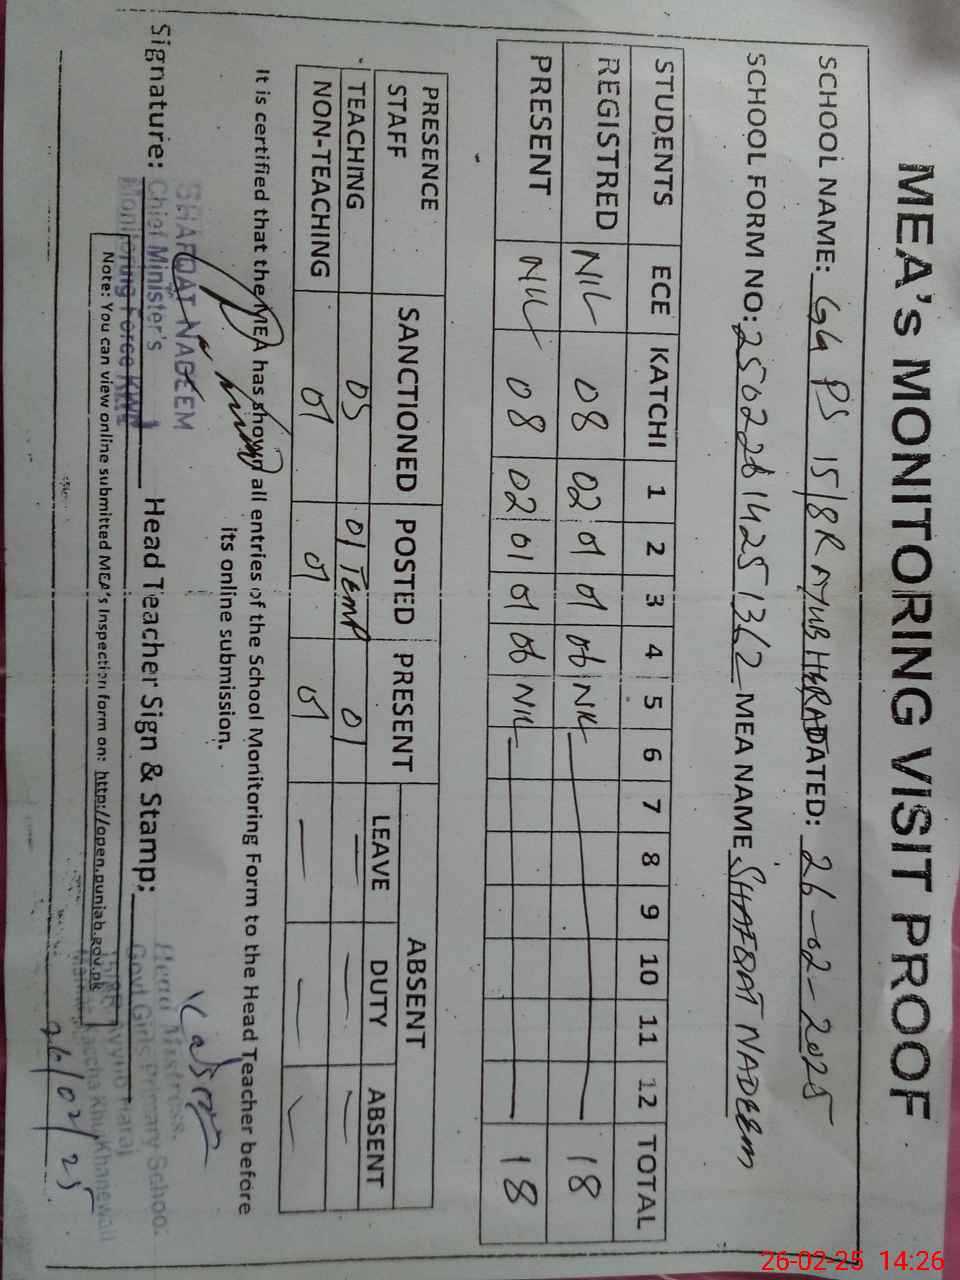 MEA's MONITORING VISIT PROOF
SCHOOL NAME: GG PS 15/8R AYUB HIRA DATED: 26-02-2025
SCHOOL FORM NO: MEA NAME SHAFQAT NADEEM
STUDENTS ECE KATCHI 1 2 3 4 5 6 7 8 9 10 11 12 TOTAL
REGISTRED NIL 08 02 01 01 06 NIL 18
PRESENT NIL 08 02 01 01 06 NIL 18
PRESENCE STAFF SANCTIONED POSTED PRESENT ABSENT
LEAVE DUTY ABSENT
TEACHING 05 01 TEMP 01 — — —
NON-TEACHING 01 01 01 — — —
It is certified that the MEA has shown all entries of the School Monitoring Form to the Head Teacher before
its online submission.
SHAFQAT NADEEM
Signature: Chief Minister's Head Teacher Sign & Stamp:
Monitoring Force KWL
Head Mistress
Govt Girls Primary School
Note: You can view online submitted MEA's Inspection form on: http://open.punjab.gov.pk
Kaccha Khu Khanewal
26/02/25
26-02-25 14:26